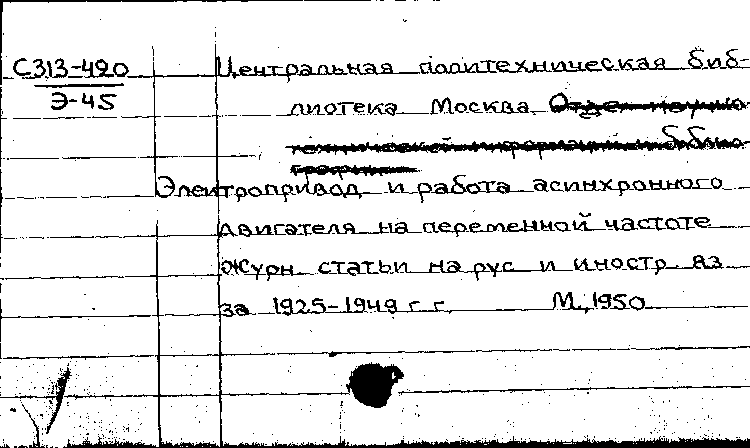 С313-420
Э-45
Центральная политехническая биб-
лиотека Москва Отдел научно
технической информации и библио
графии
Электропривод и работа асинхронного
двигателя на переменной частоте
Журн. статьи на рус и иностр яз
за 1925-1949 г. г. М., 1950